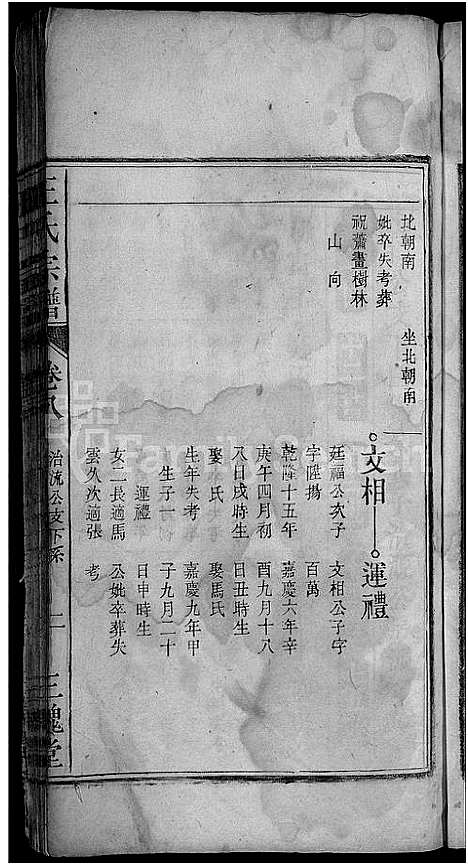 北朝南
坐北朝南
妣卒失考葬
祝蕭畫樹林
山向
文相
運禮
廷福公次子
字陞揚
乾隆十五年
庚午四月初
八日戌時生
娶氏
生年失考
生子一
運禮
女二長適馬
雲久次適張
文相公子字
百萬
嘉慶六年辛
酉九月十八
日丑時生
娶馬氏
嘉慶九年甲
子九月二十
日申時生
公妣卒葬失
考
王氏宗譜
卷八
治流公支下系
二
三槐堂